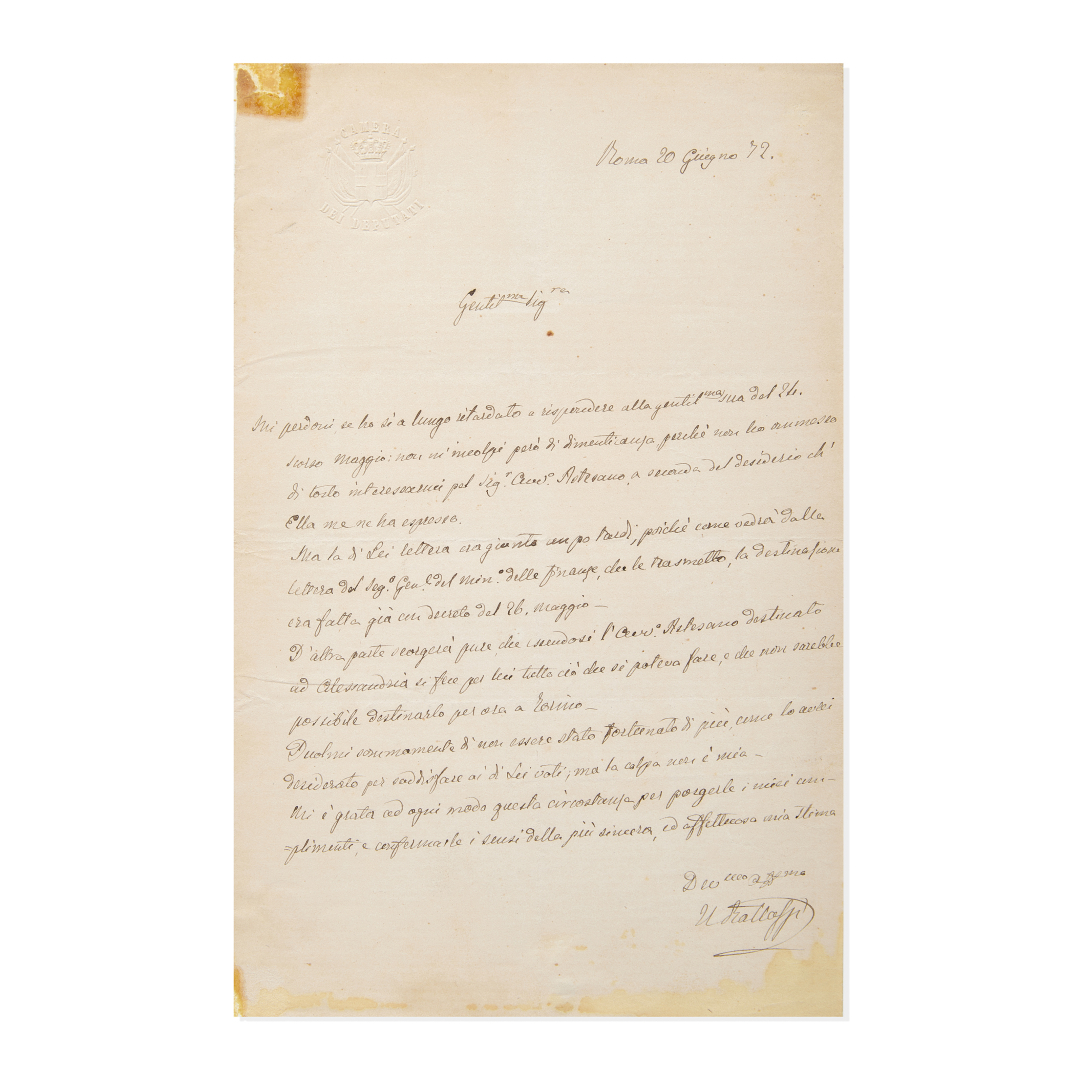 CAMERA
DEI DEPUTATI
Roma 20 Giugno 72.
Gentilma Sigra
Mi perdoni se ho sì a lungo ritardato a rispondere alla gentilma sua del 24.
scorso Maggio: non m'incolpi però di dimenticanza perchè non ho ommesso
di tosto interessarmi pel Sigr. Cavo. Astesano, a seconda del desiderio ch'
Ella me ne ha espresso.
Ma la di Lei lettera era giunta un po tardi, poichè come vedrà dalla
lettera del Sego. Genl. del Mino. delle finanze, che le trasmetto, la destinazione
era fatta già con decreto del 26. maggio —
D'altra parte scorgerà pure, che essendosi l'Avvo. Astesano destinato
ad Alessandria si fece per lui tutto ciò che si poteva fare, e che non sarebbe
possibile destinarlo per ora a Torino —
Duolmi sommamente di non essere stato fortunato di più, come lo avrei
desiderato per soddisfare ai di Lei voti; ma la colpa non è mia —
Mi è grata ad ogni modo questa circostanza per porgerle i miei com-
=plimenti, e confermarle i sensi della più sincera, ed affettuosa mia stima
U Rattazzi